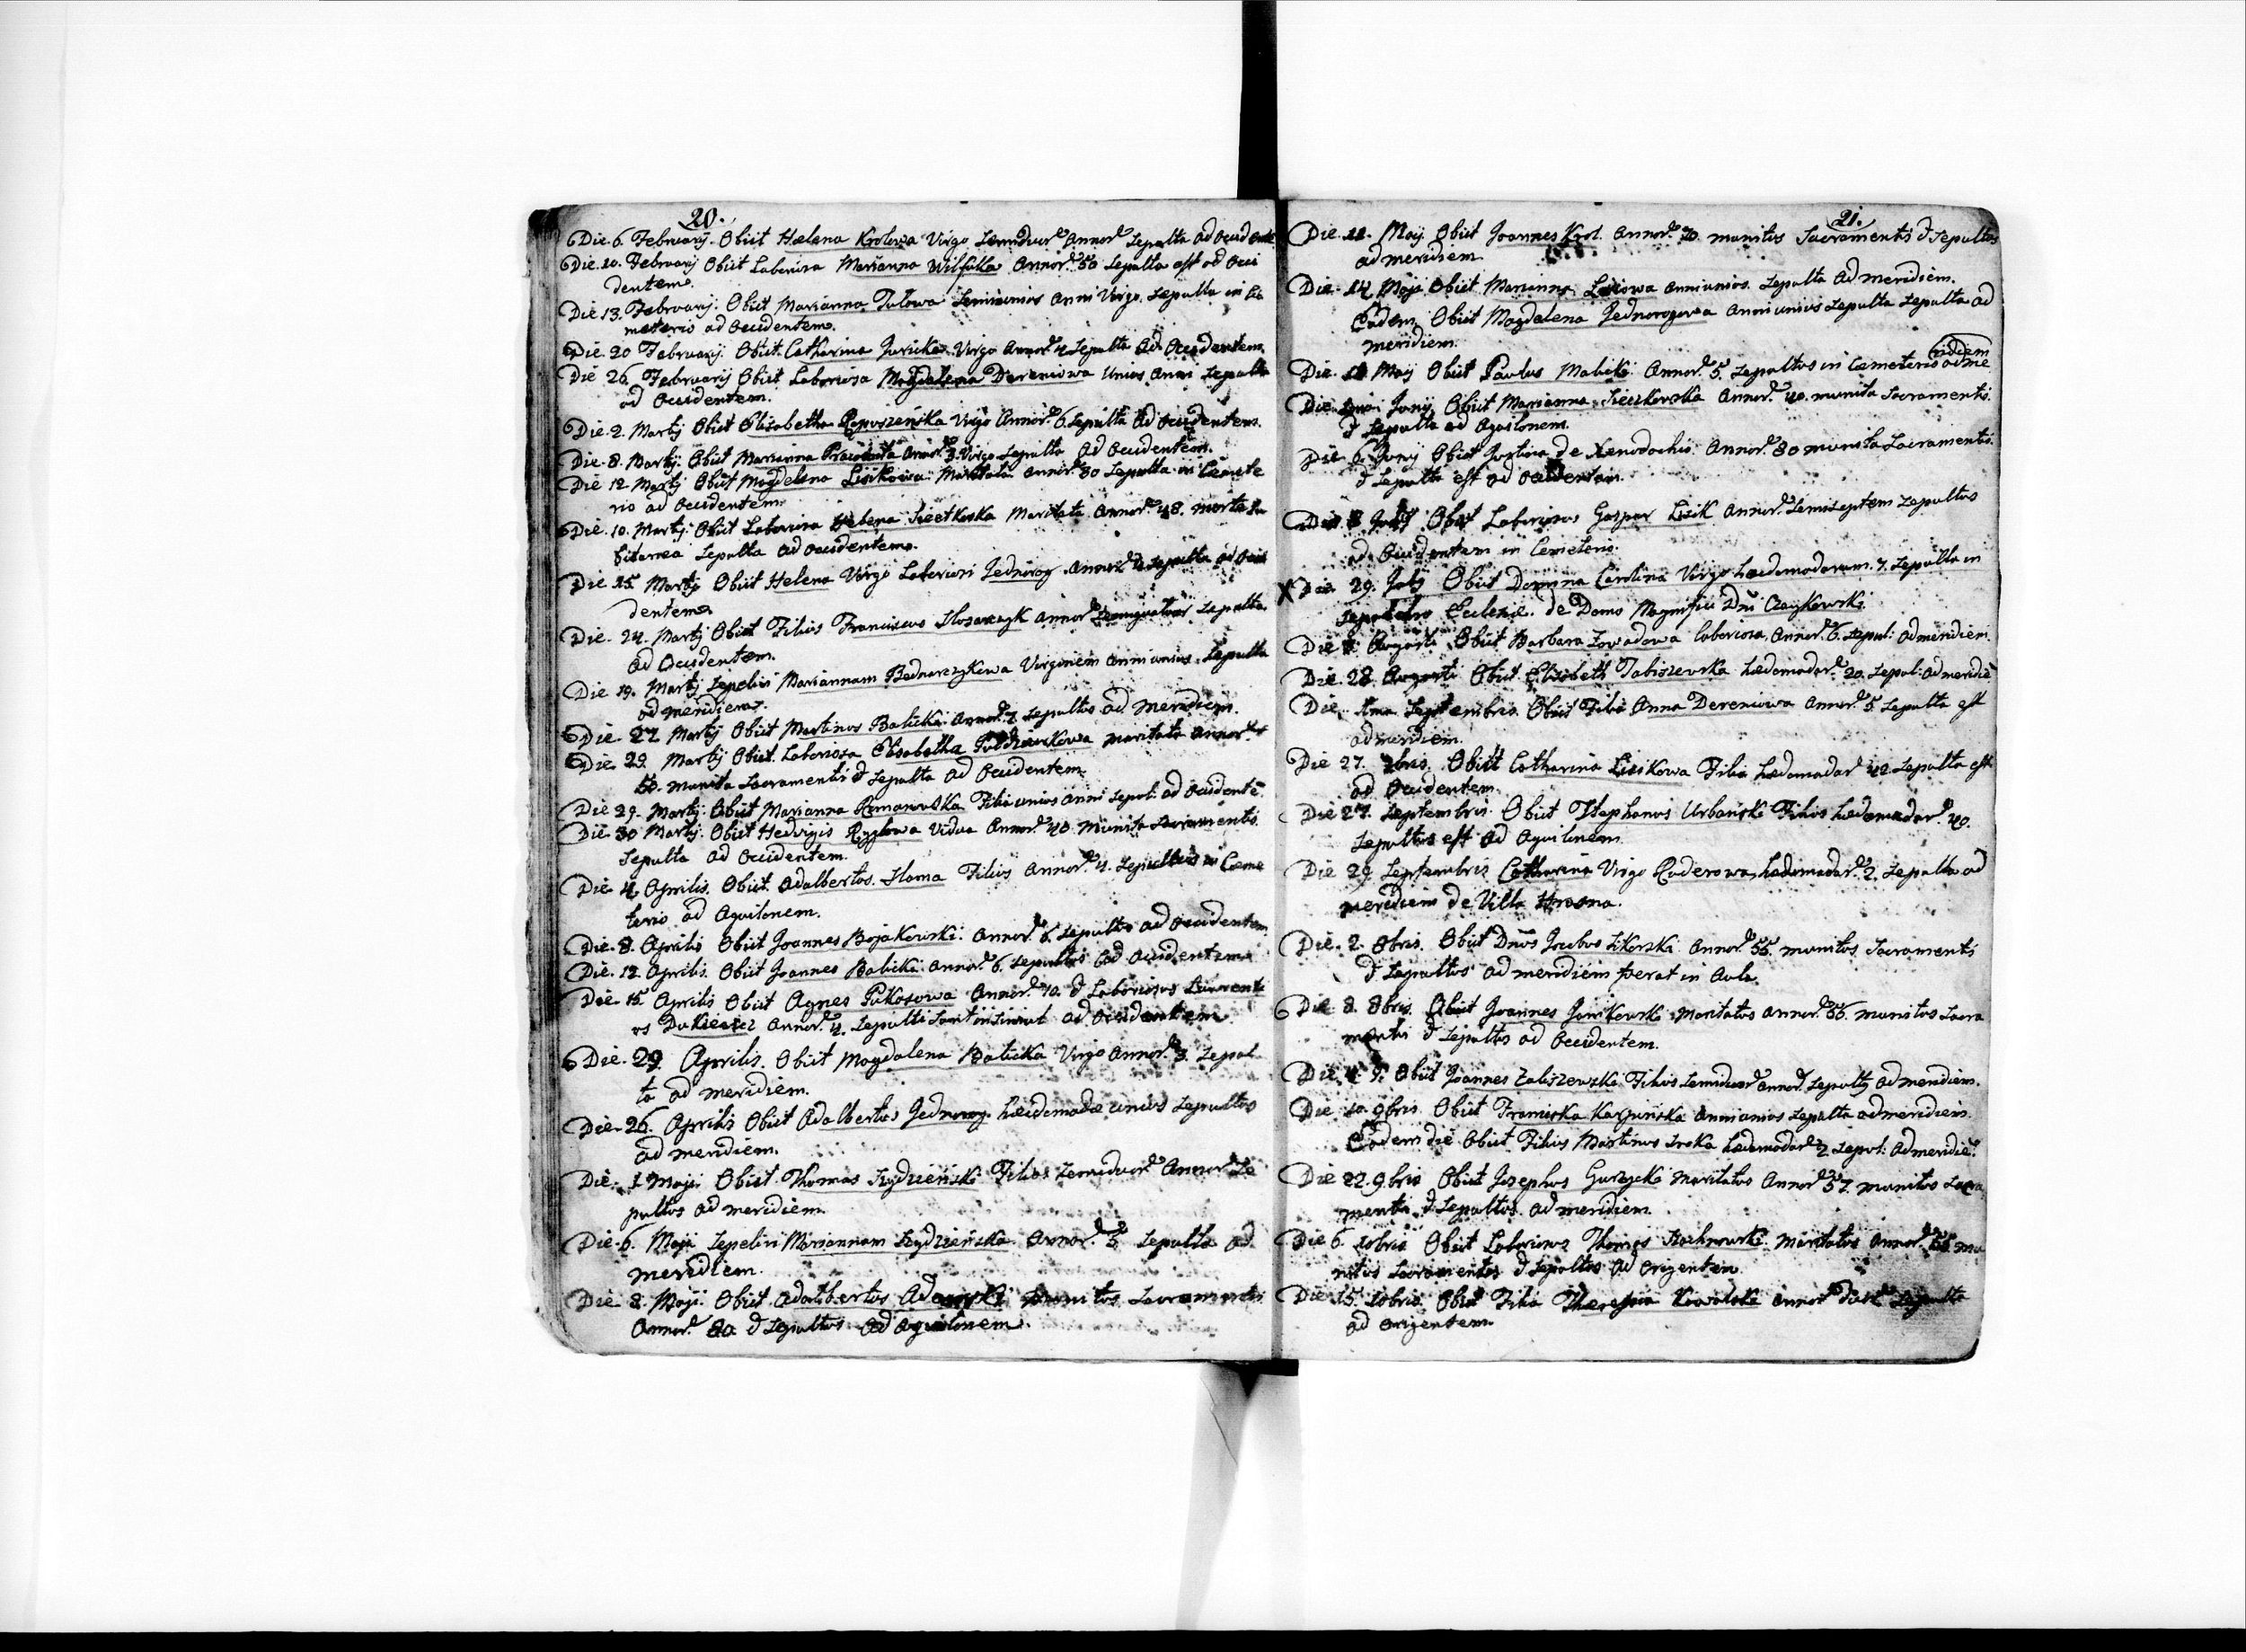 20.
Die 6. Februarij. Obiit Hælena Krolowa Virgo Semiduor. Annor. Sepulta ad Occidente
Die 10. Februarij Obiit Laboriosa Marianna Wilfulka Annor. 50 Sepulta est ad Occi
dentem.
Die 13. Februarij. Obiit Marianna Tulowa Semiunius Anni Virgo. Sepulta in Cæ
meterio ad Occidentem.
Die 20 Februarij. Obiit Catharina Juricka Virgo Annor. 4 Sepulta ad Occidentem.
Die 26. Februarij Obiit Laboriosa Magdalena Dereniowa Unius Anni Sepulta
ad Occidentem.
Die 2. Martij Obiit Elisabetha Rapuszeńska Virgo Annor. 6. Sepulta ad Occidentem.
Die 8. Martij. Obiit Marianna Annor. 3. Virgo Sepulta ad Occidentem.
Die 12 Martij Obiit Magdalena Lisikowa Maritata Annor. 30 Sepulta in Cæmete
rio ad Occidentem.
Die 10. Martij. Obiit Laboriosa Helena Sieczkoska Maritata Annor. 48. morte Su
bitanea Sepulta ad Occidentem.
Die 15 Martij Obiit Helena Virgo Laboriosi Jednorog Annor. 4 Sepulta ad Occi
dentem.
Die 24. Martij Obiit Filius Franciscus Slosarczyk Annor. Semiquatuor Sepulta
ad Occidentem.
Die 19. Martij Sepelivi Mariannam Bednarczykowa Virginem anni unius. Sepulta
ad meridiem.
Die 27 Martij Obiit Martinus Balicki Annor. 7 Sepultus ad meridiem.
Die 29. Martij Obiit Laboriosa Elisabetha maritata Annor.
50. munita Sacramentis & Sepulta ad Occidentem.
Die 29. Martij. Obiit Marianna Romanoska Filia unius anni Sepul: ad Occidentē
Die 30 Martij. Obiit Hedvigis Ryglowa Vidua Annor. 40 munita Sacramentis.
Sepulta ad Occidentem.
Die 4. Aprilis. Obiit Adalbertus. Slama Filius Annor. 4. Sepultus in Cæme
terio ad Aquilonem.
Die 8. Aprilis Obiit Joannes Bojakowski. Annor. 6. Sepultus ad Occidentem.
Die 12 Aprilis. Obiit Joannes Balicki Annor. 6. Sepultus ad Occidentem.
Die 15 Aprilis Obiit Agnes Pukosowa Annor. 70. & Laboriosus Laurenti
us Dukieesz Annor. 4. Sepulti Sunt insimul ad Occidentem
Die 29. Aprilis. Obiit Magdalena Balicka Virgo Annor. 3. Sepul
ta ad meridiem.
Die 26. Aprilis Obiit Adalbertus Jednorog. hædomadæ unius Sepultus
ad meridiem.
Die 1 Maji. Obiit Thomas Szydzieński Filius Semiduor. Annor. Se
pultus ad meridiem.
Die 6. Maji Sepelivi Mariannam Szydzieńska Annor. 3. Sepulta ad
meridiem.
Die 8. Maji. Obiit Adalbertus Adamski munitus Sacramentis
Annor. 80. & Sepultus ad Aquilonem.
21.
Die 11. Maij. Obiit Joannes Krol. Annor. 70. munitus Sacramentis & Sepultus
ad meridiem
Die 14 Maji. Obiit Marianna Lisiowa anni unius. Sepulta ad meridiem.
Eadem Obiit Magdalena Jednorogowa Anni unius Sepulta Sepulta ad
meridiem.
Die Maij Obiit Paulus Malicki Annor. 5. Sepultus in Cæmeterio ad me
ridiem
Die Junij Obiit Marianna Sieczkowska Annor. 40. munita Sacramentis.
& Sepulta ad Aquilonem.
Die 6. Junij Obiit Justina de Xenodochio Annor. 80 munita Sacramentis.
& Sepulta est ad Occidentem.
Die Julij Obiit Laboriosus Gaspar Lisik Annor. Semiseptem Sepultus
ad Occidentem in Cemeterio.
X Die 29. Julij Obiit Domina Carolina Virgo hædomadarum. 7. Sepulta in
Sepulchro Eclesiæ. de Domo Magnifici Dni Czaykowski.
Die Augusti Obiit Barbara Zowadowa laboriosa Annor. 6. Sepul: ad meridiem.
Die 28. Augusti Obiit Elisabeth Tabiszewska hædomadar. 20. Sepul: ad meridiē
Die 1ma Septembris. Obiit Filia Anna Dereniowa Annor. 5 Sepulta est
ad meridiem.
Die 27. 7bris. Obiit Catharina Lisikowa Filia hædomadar. 42 Sepulta est
ad Occidentem.
Die 27. Septembris. Obiit Stephanus Urbański Filius hædomadar. 40.
Sepultus est ad Aquilonem.
Die 29. Septembris Catharina Virgo Ruderowa hædomadar. 2. Sepulta ad
meridiem de Villa Hrosna.
Die 2. 8bris. Obiit Dnus Jacobus Sikorski Annor. 56. munitus Sacramentis
& Sepultus ad meridiem ferat in Aula.
Die 8. 8bris. Obiit Joannes Janikowski Maritatus Annor. 66. munitus Sacra
mentis & Sepultus ad Occidentem.
Die 4 9. Obiit Joannes Zaliszewski Filius Semiduor. annor. Sepultg ad meridiem.
Die 10. 9bris. Obiit Franciska Karpinska Anni unius Sepulta ad meridiem.
Eodem die Obiit Filius Martinus Sroka hædomadar. 2 Sepul: ad meridiē.
Die 22. 9bris Obiit Josephus Gurzycki Maritatus Annor. 57. munitus Sacra
mentis & Sepultus. ad meridiem.
Die 6. 10bris Obiit Laboriosus Thomas Kochnowski Maritatus Annor. 56. mu
nitus Sacramentis & Sepultus ad Origentem
Die 15. 10bris. Obiit Filia Theresia Kowalska Annor. Sepulta
ad Origentem.